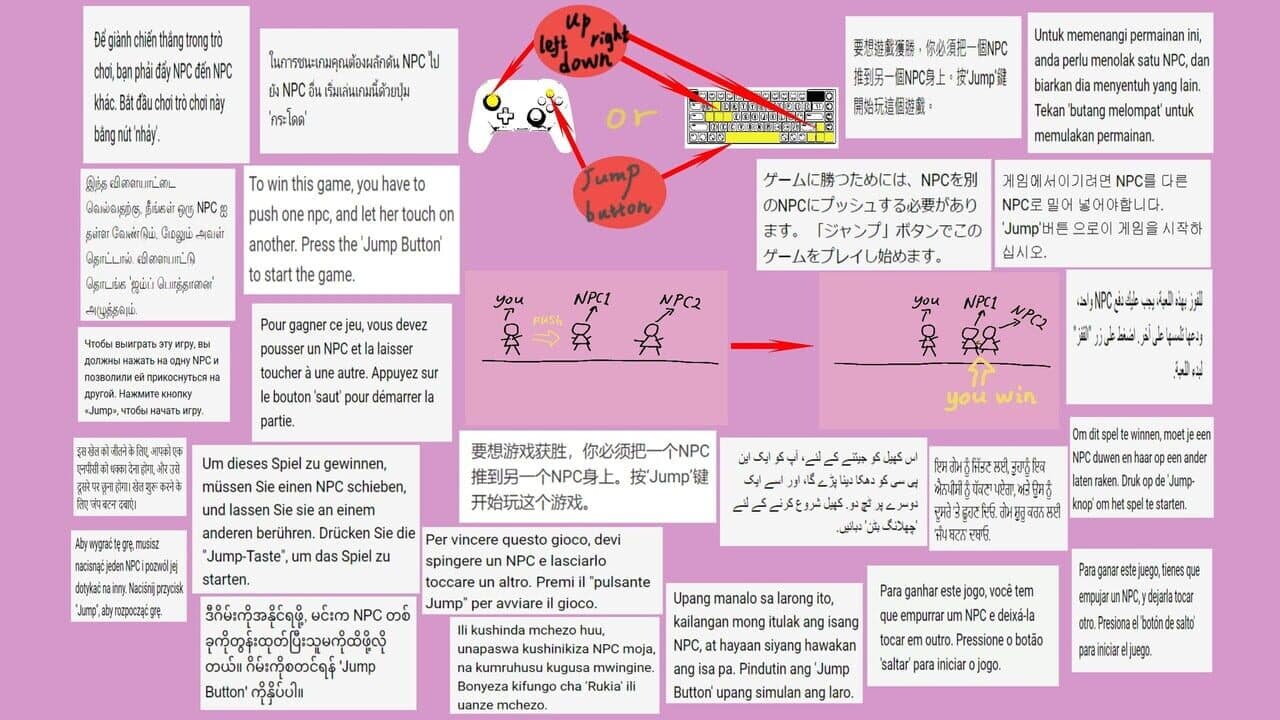 Để giành chiến thắng trong trò
chơi, bạn phải đẩy NPC đến NPC
khác. Bắt đầu chơi trò chơi này
bằng nút 'nhảy'.
ในการชนะเกมคุณต้องผลักดัน NPC ไป
ยัง NPC อื่น เริ่มเล่นเกมนี้ด้วยปุ่ม
'กระโดด'
up
left right
down
or
Jump
button
要想遊戲獲勝，你必須把一個NPC
推到另一個NPC身上。按'Jump'鍵
開始玩這個遊戲。
Untuk memenangi permainan ini,
anda perlu menolak satu NPC, dan
biarkan dia menyentuh yang lain.
Tekan 'butang melompat' untuk
memulakan permainan.
இந்த விளையாட்டை
வெல்வதற்கு, நீங்கள் ஒரு NPC ஐ
தள்ள வேண்டும், மேலும் அவள்
தொட்டால். விளையாட்டு
தொடங்க 'ஜம்ப் பொத்தானை'
அழுத்தவும்.
To win this game, you have to
push one npc, and let her touch on
another. Press the 'Jump Button'
to start the game.
ゲームに勝つためには、NPCを別
のNPCにプッシュする必要があり
ます。「ジャンプ」ボタンでこの
ゲームをプレイし始めます。
게임에서이기려면 NPC를 다른
NPC로 밀어 넣어야합니다.
'Jump'버튼 으로이 게임을 시작하
십시오.
you
PUSH
NPC1
NPC2
you
NPC1
NPC2
you win
للفوز بهذه اللعبة، يجب عليك دفع NPC واحد،
ودعها تلمسها على آخر. اضغط على زر "القفز"
لبدء اللعبة.
Чтобы выиграть эту игру, вы
должны нажать на одну NPC и
позволили ей прикоснуться на
другой. Нажмите кнопку
«Jump», чтобы начать игру.
Pour gagner ce jeu, vous devez
pousser un NPC et la laisser
toucher à une autre. Appuyez sur
le bouton 'saut' pour démarrer la
partie.
इस खेल को जीतने के लिए, आपको एक
एनपीसी को धक्का देना होगा, और उसे
दूसरे पर छूना होगा। खेल शुरू करने के
लिए 'जंप बटन' दबाएं।
Um dieses Spiel zu gewinnen,
müssen Sie einen NPC schieben,
und lassen Sie sie an einem
anderen berühren. Drücken Sie die
"Jump-Taste", um das Spiel zu
starten.
要想游戏获胜，你必须把一个NPC
推到另一个NPC身上。按'Jump'键
开始玩这个游戏。
اس کھیل کو جیتنے کے لئے، آپ کو ایک این
پی سی کو دھکا دینا پڑے گا، اور اسے ایک
دوسرے پر ٹچ دو. کھیل شروع کرنے کے لئے
'چھلانگ بٹن' دبائیں.
ਇਸ ਗੇਮ ਨੂੰ ਜਿੱਤਣ ਲਈ, ਤੁਹਾਨੂੰ ਇਕ
ਐਨਪੀਸੀ ਨੂੰ ਧੱਕਣਾ ਪਏਗਾ, ਅਤੇ ਉਸ ਨੂੰ
ਦੂਸਰੇ 'ਤੇ ਛੂਹਣ ਦਿਓ. ਗੇਮ ਸ਼ੁਰੂ ਕਰਨ ਲਈ
'ਜੰਪ ਬਟਨ ਦਬਾਓ.
Om dit spel te winnen, moet je een
NPC duwen en haar op een ander
laten raken. Druk op de 'Jump-
knop' om het spel te starten.
Aby wygrać tę grę, musisz
nacisnąć jeden NPC i pozwól jej
dotykać na inny. Naciśnij przycisk
"Jump", aby rozpocząć grę.
ဒီဂိမ်းကိုအနိုင်ရဖို့, မင်းက NPC တစ်
ခုကိုတွန်းထုတ်ပြီးသူမကိုထိဖို့လို
တယ်။ ဂိမ်းကိုစတင်ရန် 'Jump
Button' ကိုနှိပ်ပါ။
Per vincere questo gioco, devi
spingere un NPC e lasciarlo
toccare un altro. Premi il "pulsante
Jump" per avviare il gioco.
Ili kushinda mchezo huu,
unapaswa kushinikiza NPC moja,
na kumruhusu kugusa mwingine.
Bonyeza kifungo cha 'Rukia' ili
uanze mchezo.
Upang manalo sa larong ito,
kailangan mong itulak ang isang
NPC, at hayaan siyang hawakan
ang isa pa. Pindutin ang 'Jump
Button' upang simulan ang laro.
Para ganhar este jogo, você tem
que empurrar um NPC e deixá-la
tocar em outro. Pressione o botão
'saltar' para iniciar o jogo.
Para ganar este juego, tienes que
empujar un NPC, y dejarla tocar
otro. Presiona el 'botón de salto'
para iniciar el juego.